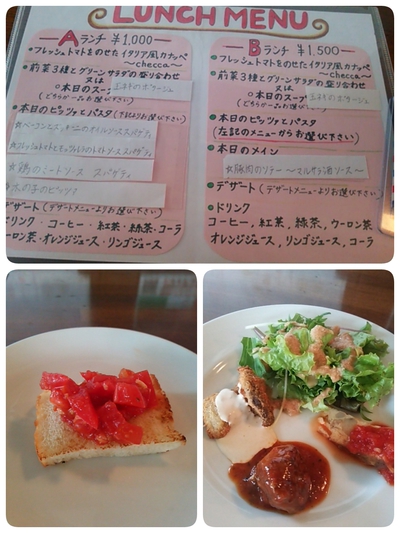 LUNCH MENU
Aランチ ¥1,000
・フレッシュトマトをのせたイタリア風カナッペ
～checca～
・前菜3種とグリーンサラダの盛り合わせ
又は
○本日のスープ
玉ねぎのポタージュ
(どちらか一品お選び
本日のピッツァとパスタ(下記よりお選び下さい)
☆フレッシュトマトとモッツァレラのトマトソース スパゲティ
☆鶏のミートソース スパゲティ
木の子のピッツァ
デザート(デザートメニューよりお選び下さい)
ドリンク・コーヒー・紅茶・緑茶・コーラ
ウーロン茶・オレンジジュース・リンゴジュース
Bランチ ¥1,500
・フレッシュトマトをのせたイタリア風カナッペ
～checca～
・前菜3種とグリーンサラダの盛り合わせ
又は
○本日のスープ
玉ねぎのポタージュ
(どちらか一品お選び
・本日のピッツァとパスタ
(左記のメニューからお選び下さい)
・本日のメイン
☆豚肉のソテー ～マルサラ酒ソース～
・デザート(デザートメニューよりお選び下さい)
・ドリンク
コーヒー, 紅茶, 緑茶, ウーロン茶
オレンジジュース, リンゴジュース, コーラ